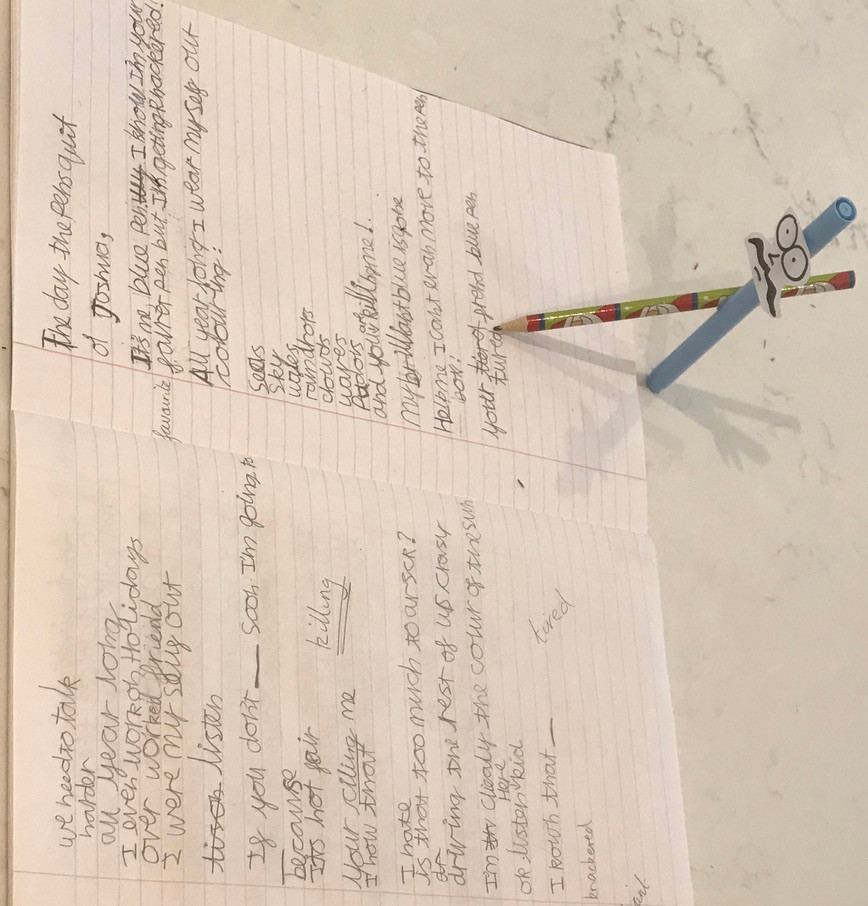 we need to talk
harder
all year long
I even work on Holidays
over worked friend
I were my self out
listen
If you don't — soon I'm going to
because
Its not fair
killing
your cilling me
I now that
I hate
is that too much to arsck?
driving the rest of us crasy
I'm clealy the colur of the sun
Here
or listen kid
I kownh that —
tired
knackered
The day the pens quit
Joshua,
It's me, blue pen. I know I'm your
favourite
favert pen but I'm geting knackered!
All year long I wear my self out
colouring:
Seas
Sky
wales
raindrops
clouds
waves
and your killing me!
My brilliant blue is gone
Help me I can't evan move to the pen
box!
your friend blue pen